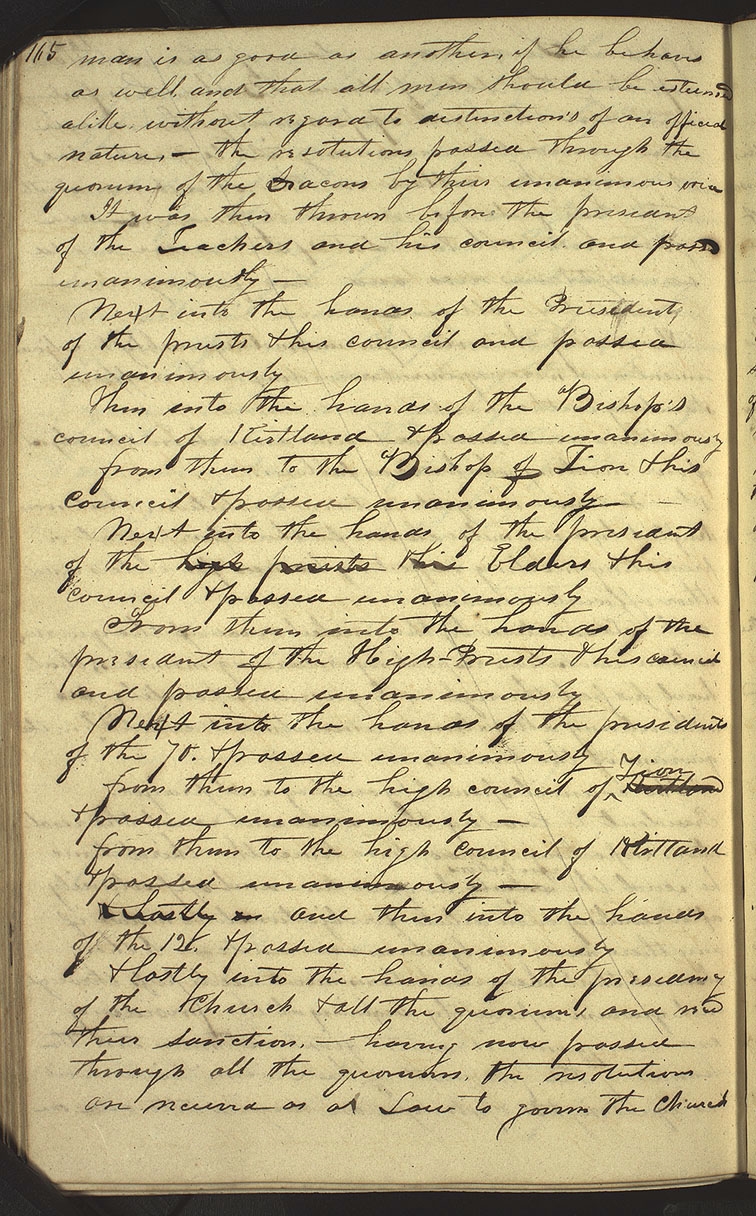 165 man is as good as another, if he behave
as well, and that all men should be esteemed
alike, without regard to distinctions of an official
nature, — the resolutions passed through the
quorum of the Deacons by their unanimous voice
It was then thrown before the president
of the Teachers and his council and passed
unanimously —
Next into the hands of the President
of the priests & his council and passed
unanimously
Then into the hands of the Bishop's
council of Kirtland & passed unanimously
from them to the Bishop of Zion & his
council & passed unanimously —
Next into the hands of the president
of the high priests this Elders & his
council & passed unanimously
From them into the hands of the
president of the High-Priests & his council
and passed unanimously
Next into the hands of the presidents
of the 70. & passed unanimously
from them to the high council of Zion Kirtland
& passed unanimously —
from them to the high council of Kirtland
& passed unanimously —
& Lastly in and then into the hands
of the 12. & passed unanimously
& lastly into the hands of the presidency
of the Church & all the quorums, and recd
their sanction. — having now passed
through all the quorums, the resolutions
are received as a Law to govern the Church